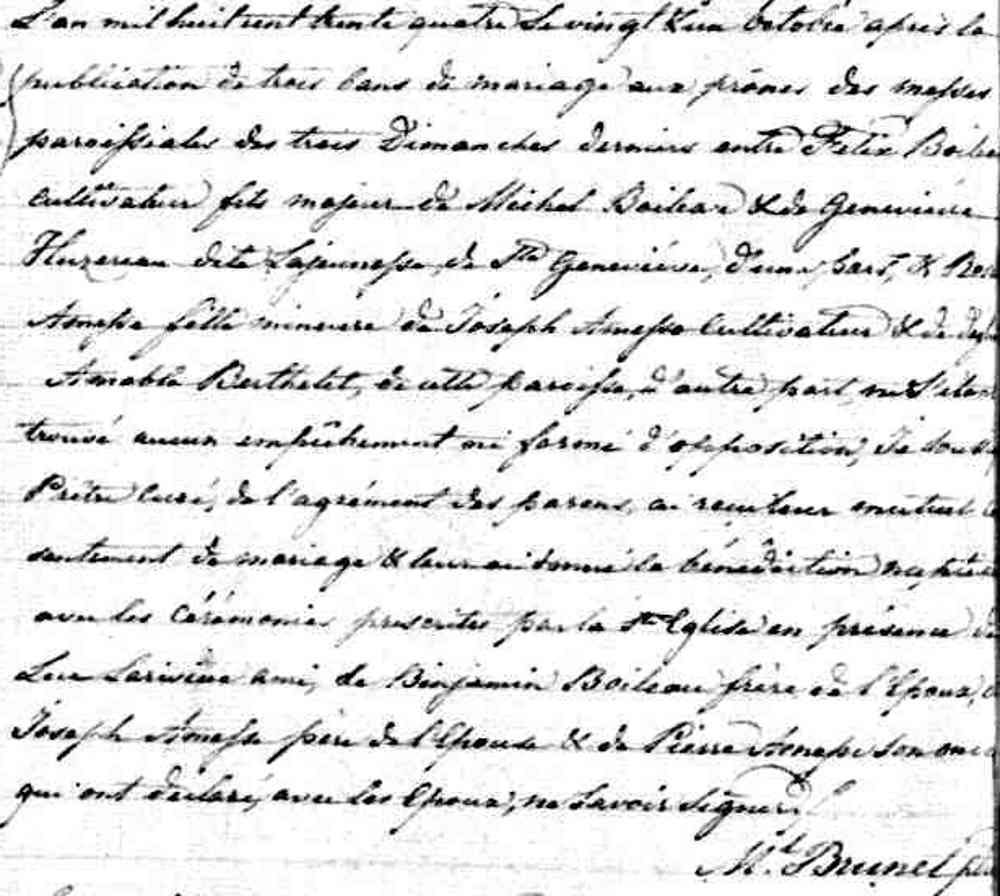 L'an mil huit cent trente quatre le vingt & un Octobre après la
publication de trois bans de mariage aux prônes des messes
paroissiales des trois Dimanches derniers entre Felix Boileau
Cultivateur fils majeur de Michel Boileau & de Genevieve
dite Lajeunesse de Ste Geneviève, d'une part, &
Amesse fille mineure de Joseph Amesse Cultivateur & de
Amable Berthelet, de cette paroisse, d'autre part, ne s'étant
trouvé aucun empêchement ni formé d'opposition, Je
Prêtre Curé, de l'agrément des parens, ai reçu leur mutuel
sentement de mariage & leur ai donné la bénédiction nuptiale
avec les Cérémonies prescrites par la Ste Eglise en présence de
Luc Lariviere ami, de Benjamin Boileau frère de l'Epoux,
Joseph Amesse père de l'Epouse & de Pierre Amesse son oncle
qui ont déclaré, avec les Epoux, ne savoir signer.
Brunet